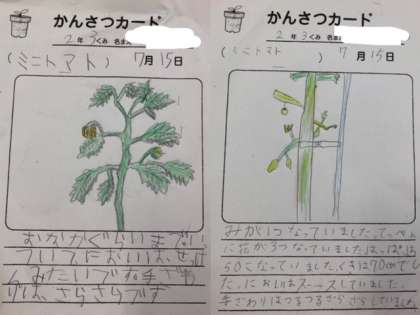 かんさつカード
2年 3くみ 名まえ
(ミニトマト) 7月15日
おなかぐらいまで
ついてにおいは、せっけ
んみたいで手ざわ
りは、さらさらです
かんさつカード
2年 3くみ 名まえ
(ミニトマト) 7月15日
みが1つなっていました。てっぺん
に花が3つなっていました。はっぱは
50こなっていました。くきは70cmでし
た。においはスースーしていました。
手ざわりはつるつるさらさらしていました